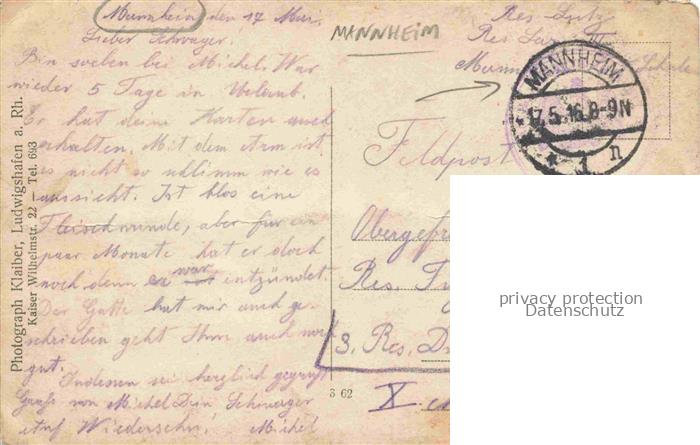 Mannheim den 17 Mai.
Lieber Schwager!
Bin soeben bei Michel. War
wieder 5 Tage in Urlaub.
Er hat deine Karten auch
erhalten. Mit dem Arm ist
es nicht so schlimm wie es
aussicht. Ist blos eine
Fleischwunde, aber für ein
paar Monate hat er doch
noch denn er war entzündet.
Der hat mir auch ge-
schrieben geht Ihm auch
gut.
Indessen sei herzlich gegrüßt
von Michel Dein Schwager
Auf Wiedersehn! Michel
MANNHEIM
Res.
Res. III
MANNHEIM
17.5.16.8-9N
* 1 n
Feldpost
Res.
3. Res.
X.
3 62
Photograph Klaiber, Ludwigshafen a. Rh.
Kaiser Wilhelmstr. 22 — Tel. 693
privacy protection
Datenschutz